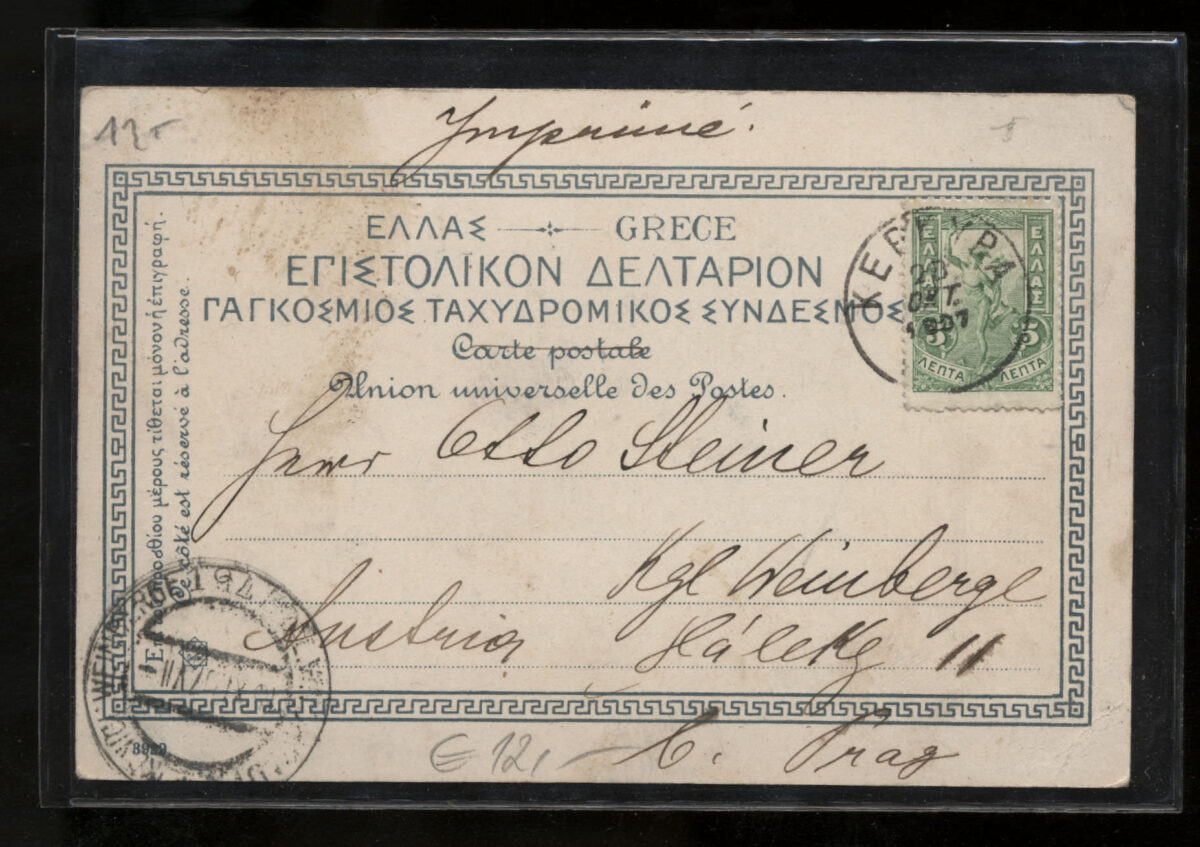 Imprimé.
12-
ΕΛΛΑΣ GRECE
ΕΓΙΣΤΟΛΙΚΟΝ ΔΕΛΤΑΡΙΟΝ
ΓΑΓΚΟΣΜΙΟΣ ΤΑΧΥΔΡΟΜΙΚΟΣ ΣΥΝΔΕΣΜΟΣ
Carte postale
Union universelle des Postes.
ΚΕΡΚΥΡΑ
ΟΚΤ.
1907
ΕΛΛΑΣ ΕΛΛΑΣ
5 5
ΛΕΠΤΑ ΛΕΠΤΑ
μέρους τίθεται μόνον ἡ ἐπιγραφή.
côté est réservé à l'adresse.
Herr Otto Steiner
Kgl Weinberge
Austria Hálekg 11
b. Prag
€12,-